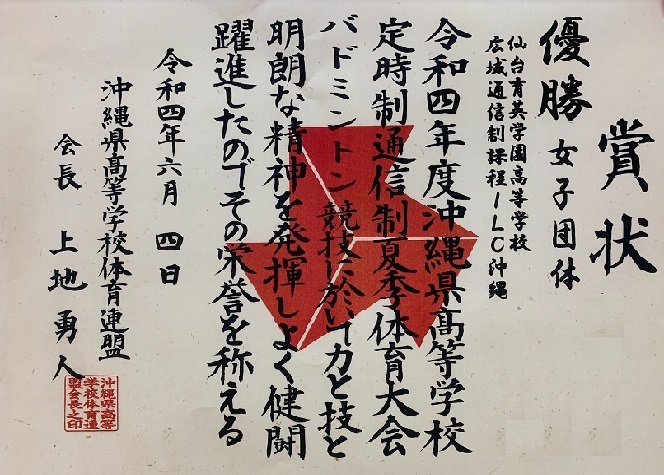 賞状
優勝 女子団体
仙台育英学園高等学校
広域通信制課程ILC沖縄
令和四年度沖縄県高等学校
定時制通信制夏季体育大会
バドミントン競技に於いて力と技と
明朗な精神を発揮しよく健闘
躍進したのでその栄誉を称える
令和四年六月 四日
沖縄県高等学校体育連盟
会長 上地勇人
沖縄県高等
学校体育連
盟会長之印